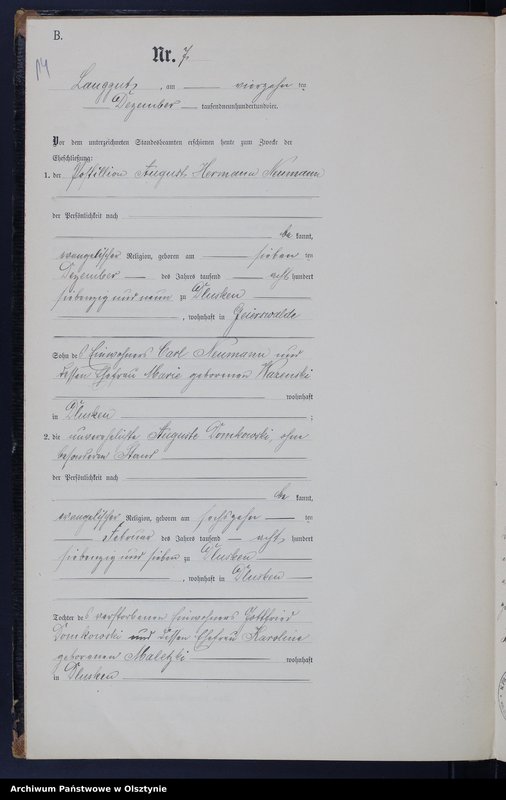 B.
14
Nr. 7.
Langgut, am — vierzehn ten
Dezember tausendneunhundertundvier.
Vor dem unterzeichneten Standesbeamten erschienen heute zum Zwecke der
Eheschließung:
1. der Postillion August Hermann Neumann
der Persönlichkeit nach
be kannt,
evangelischer Religion, geboren am sieben ten
Dezember des Jahres tausend acht hundert
siebenzig und neun zu Dlusken
, wohnhaft in Geierswalde
Sohn des Einwohners Carl Neumann und
dessen Ehefrau Marie geborenen
wohnhaft
in Dlusken ;
2. die unverehelichte Auguste Domkowski, ohne
besonderen Stand
der Persönlichkeit nach
be kannt,
evangelischer Religion, geboren am sechszehn ten
Februar des Jahres tausend acht hundert
siebenzig und sieben zu Dlusken
, wohnhaft in Dlusken
Tochter des verstorbenen Einwohners Gottfried
Domkowski und dessen Ehefrau Karoline
geborenen Maletzki wohnhaft
in Dlusken
Archiwum Państwowe w Olsztynie